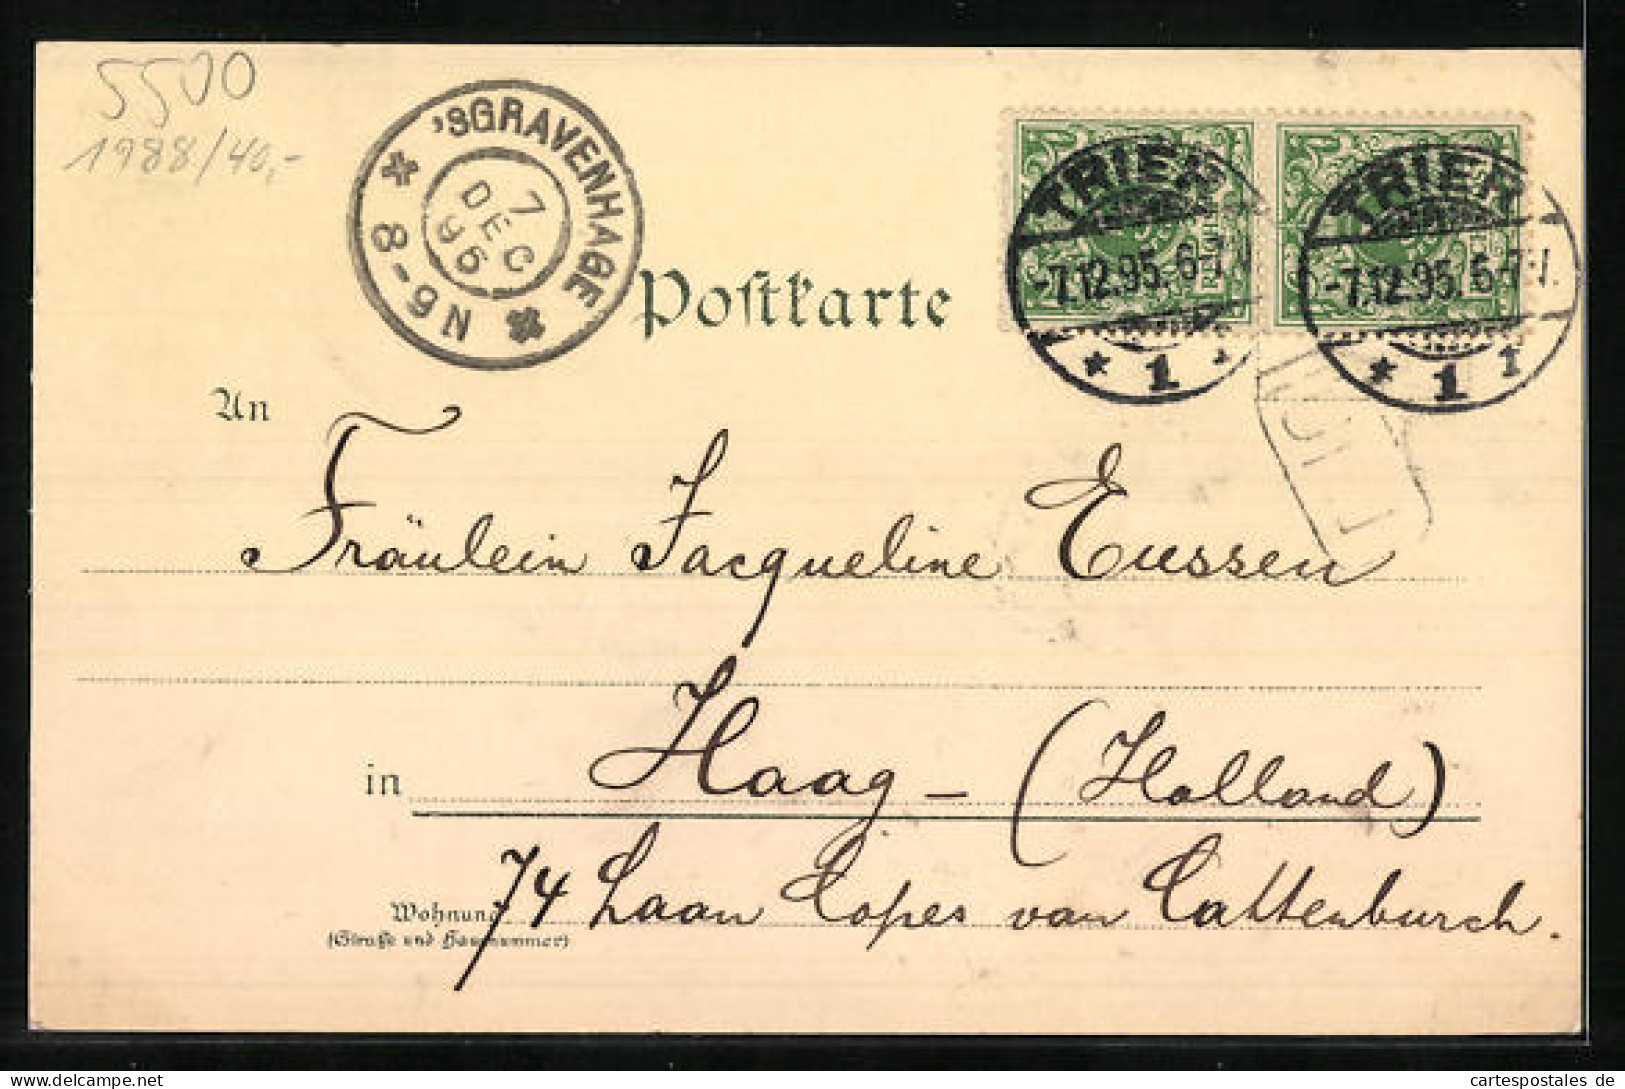 5500
1988/40,-
'SGRAVENHAGE
7
DEC
95
8-9N
TRIER
-7.12.95.6-7
* 1
TRIER
-7.12.95.6-7.
* 1
Postkarte
An
Fräulein Jacqueline Eussen
in Haag - (Holland)
Wohnung 74 Laan Copes van Cattenburch.
(Straße und Hausnummer)
cartespostales de